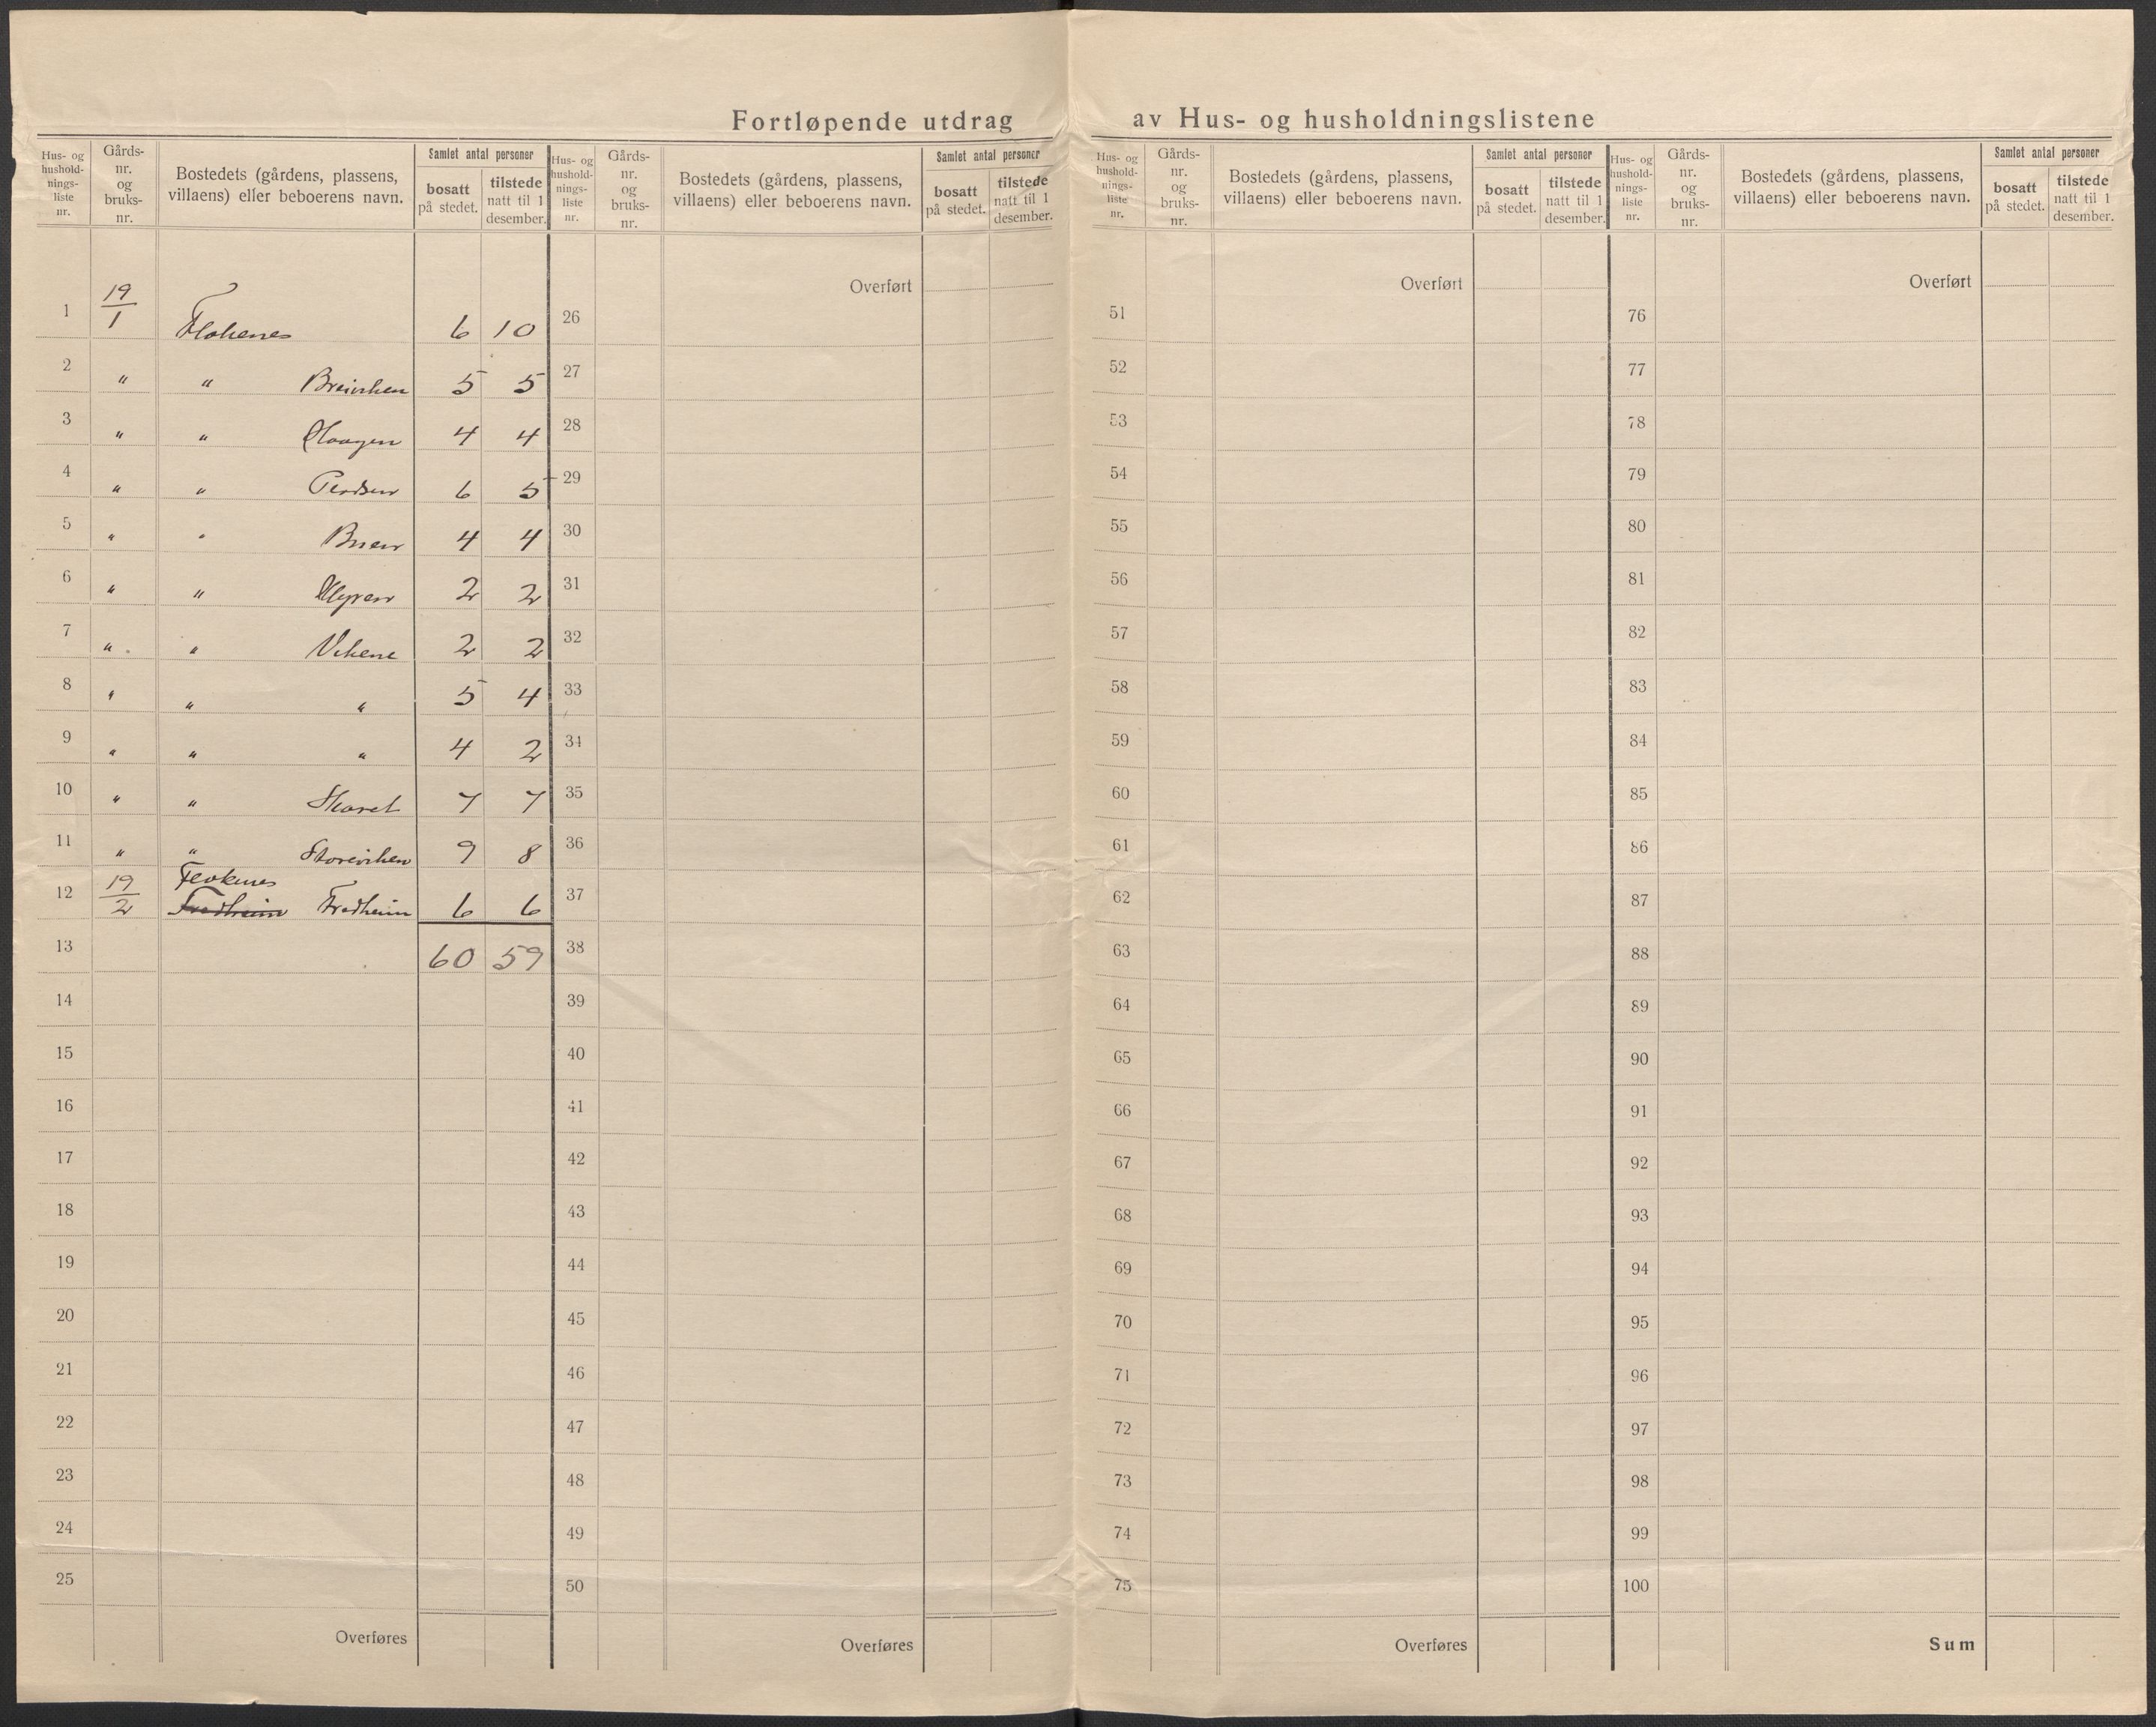 Fortløpende utdrag av Hus- og husholdningslistene
Hus- og hushold-nings-liste nr. Gårds-nr. og bruks-nr. Bostedets (gårdens, plassens, villaens) eller beboerens navn. Samlet antal personer bosatt på stedet. tilstede natt til 1 desember.
1 19/1 Flokenes 6 10
2 " " Breiviken 5 5
3 " " Haagen 4 4
4 " " 6 5
5 " " 4 4
6 " " Myren 2 2
7 " " Vikene 2 2
8 " " " 5 4
9 " " " 4 2
10 " " Skaret 7 7
11 " " Storeviken 9 8
12 19/2 Flokenes Fredheim Fredheim 6 6
13 60 59
14
15
16
17
18
19
20
21
22
23
24
25
Overføres
Hus- og hushold-nings-liste nr. Gårds-nr. og bruks-nr. Bostedets (gårdens, plassens, villaens) eller beboerens navn. Samlet antal personer bosatt på stedet. tilstede natt til 1 desember.
Overført
26
27
28
29
30
31
32
33
34
35
36
37
38
39
40
41
42
43
44
45
46
47
48
49
50
Overføres
Hus- og hushold-nings-liste nr. Gårds-nr. og bruks-nr. Bostedets (gårdens, plassens, villaens) eller beboerens navn. Samlet antal personer bosatt på stedet. tilstede natt til 1 desember.
Overført
51
52
53
54
55
56
57
58
59
60
61
62
63
64
65
66
67
68
69
70
71
72
73
74
75
Overføres
Hus- og hushold-nings-liste nr. Gårds-nr. og bruks-nr. Bostedets (gårdens, plassens, villaens) eller beboerens navn. Samlet antal personer bosatt på stedet. tilstede natt til 1 desember.
Overført
76
77
78
79
80
81
82
83
84
85
86
87
88
89
90
91
92
93
94
95
96
97
98
99
100
Sum